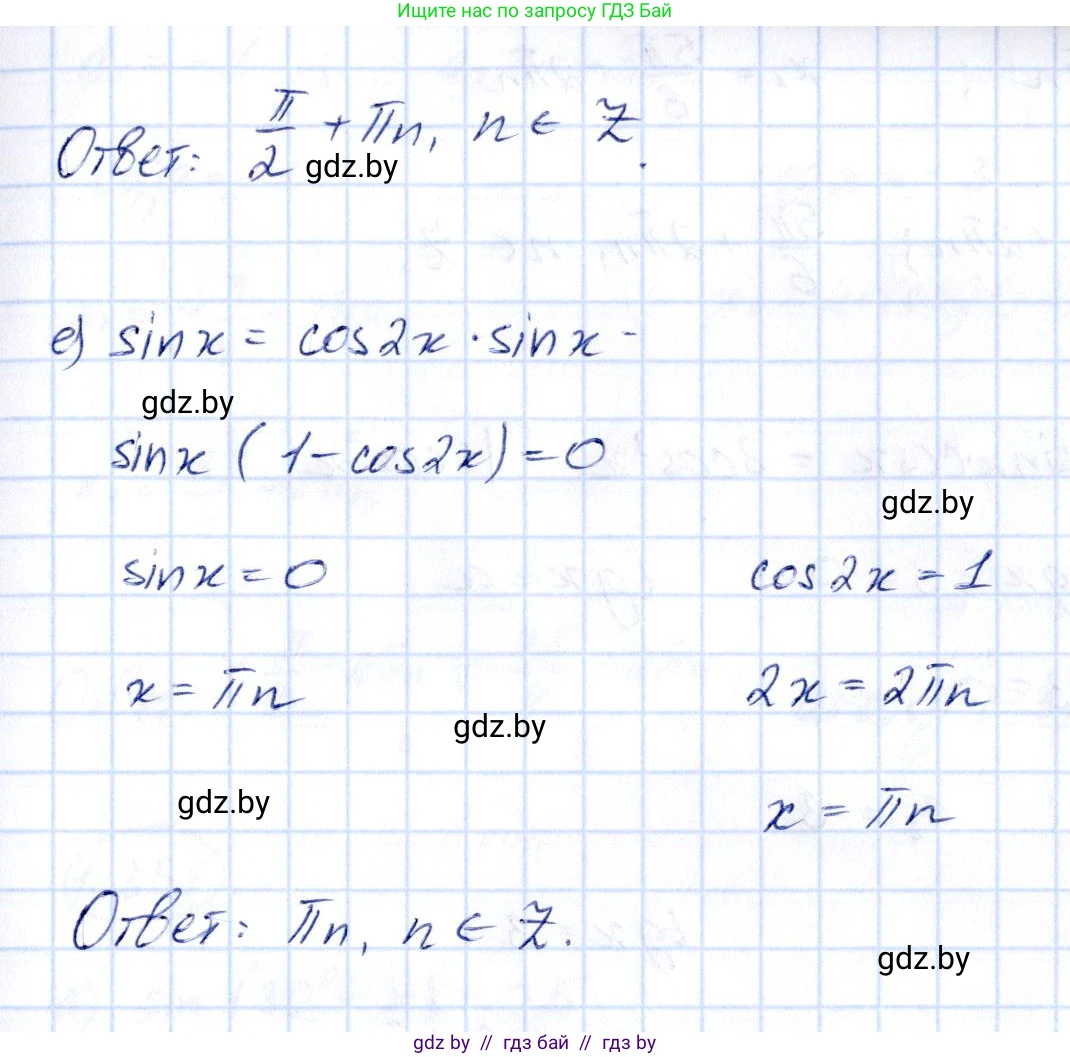 Ищите нас по запросу ГДЗ Бай
Ответ: π/2 + πn, n ∈ Z.
gdz.by
е) sinx = cos2x · sinx -
gdz.by
sinx (1 - cos2x) = 0
gdz.by
sinx = 0 cos2x = 1
x = πn 2x = 2πn
gdz.by
gdz.by
x = πn
Ответ: πn, n ∈ Z.
gdz.by
gdz.by // гдз бай // гдз.by